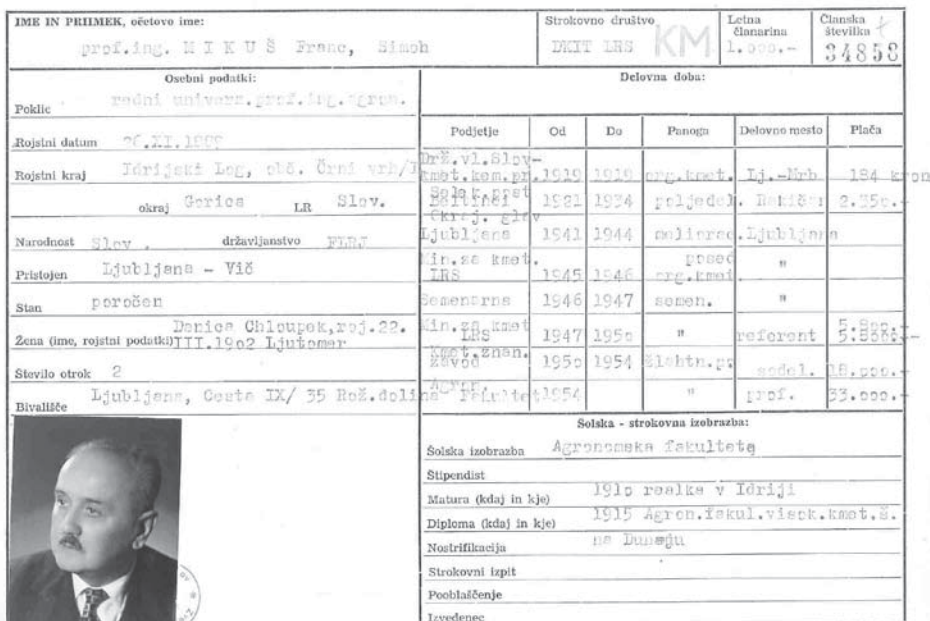 IME IN PRIIMEK, očetovo ime:
prof.ing. M I K U Š Franc, Simon
Strokovno društvo
DKIT LRS
KM
Letna članarina
1.000.-
Članska številka
34858
Osebni podatki:
Poklic redni univerz.prof.ing.agron.
Rojstni datum 26.XI.
Rojstni kraj Idrijski Log, obč. Črni vrh/I
okraj Gorica LR Slov.
Narodnost Slov . državljanstvo FLRJ
Pristojen Ljubljana - Vič
Stan poročen
Žena (ime, rojstni podatki) Danica Chloupek,roj.22.
III.1902 Ljutomer
Število otrok 2
Bivališče Ljubljana, Cesta IX/ 35 Rož.dolina
Delovna doba:
Podjetje Od Do Panoga Delovno mesto Plača
Drž.vl.Slov-
kmet.kem.pr. 1919 1919 org.kmet. Lj.-Mrb 184 kron
Beltinci 1921 1934 poljedel. Rakičan 2.350.-
Okraj. glav
Ljubljana 1941 1944 meliorac. Ljubljana
Min.za kmet. posed
LRS 1945 1946 org.kmet "
Semenarna 1946 1947 semen. "
Min.za kmet 5.800.-
LRS 1947 1950 " referent 5.8000.-
Kmet.znan.
zavod 1950 1954 žlahtn.po sodel. 18.000.-
Agron.
fakultet 1954 " prof. 33.000.-
Šolska - strokovna izobrazba:
Šolska izobrazba Agronomska fakulteta
Štipendist
Matura (kdaj in kje) 1910 realka v Idriji
Diploma (kdaj in kje) 1915 Agron.fakul.visok.kmet.š.
na Dunaju
Nostrifikacija
Strokovni izpit
Pooblaščenje
Izvedenec